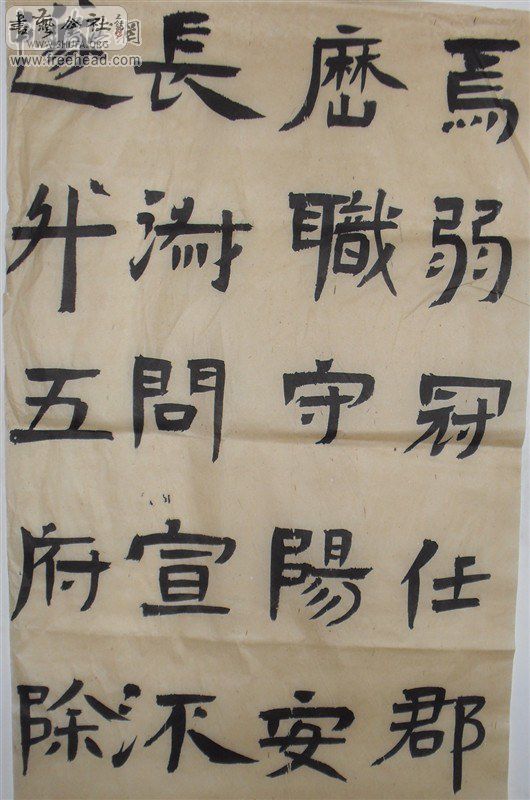 書藝公社
www.freehead.com
焉弱冠任郡
歷職守陽安
長淑問宣㳅
遂升五府除